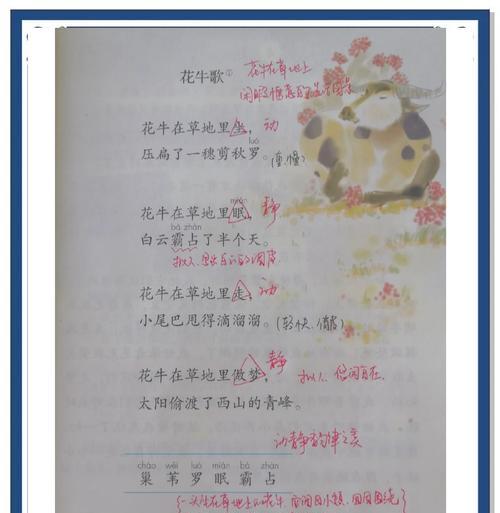 花牛歌① 花牛在草地上
闲暇惬意的生活图景
花牛在草地里坐, 动
luó
压扁了一穗剪秋罗。
mián
花牛在草地里眠, 静
bà zhàn
白云霸占了半个天。
拟人、
花牛在草地里走, 动
小尾巴甩得滴溜溜。(轻快、俏皮)
花牛在草地里做梦, 静
拟人、悠闲自在.
太阳偷渡了西山的青峰。
动静韵律之美
cháo wěi luó mián bà zhàn
巢 苇 罗 眠 霸 占